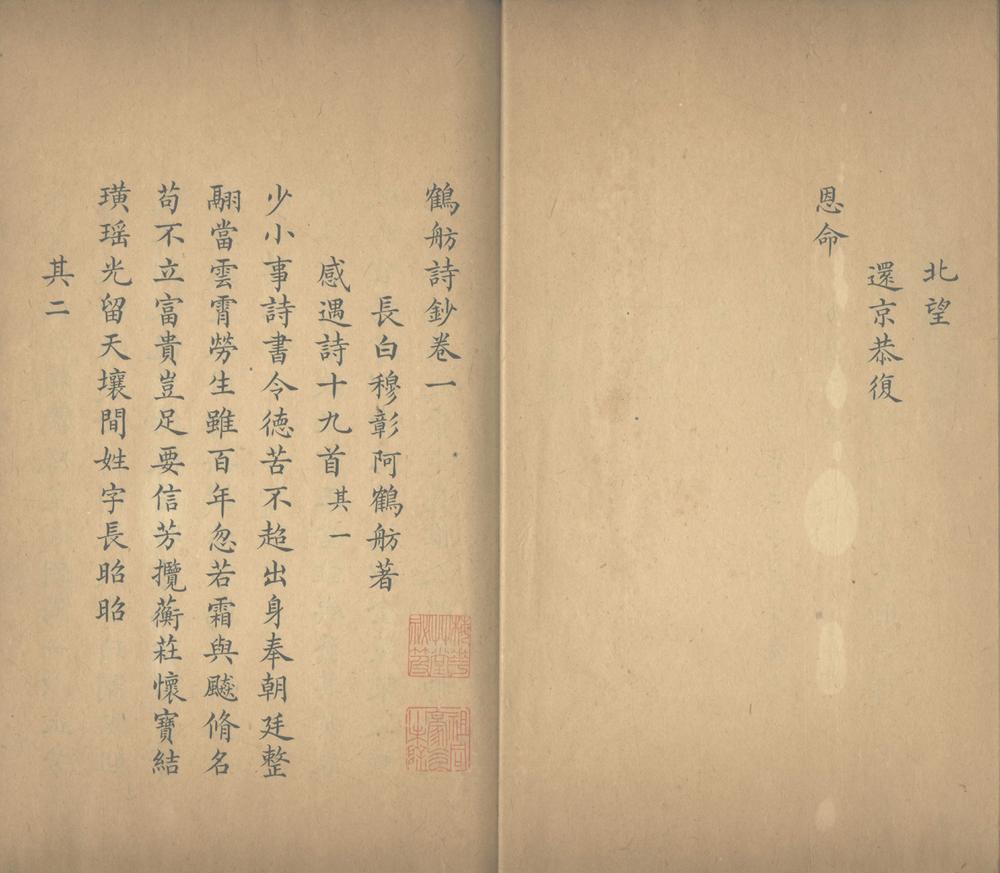 北望
還京恭復
恩命
鶴舫詩鈔卷一
長白穆彰阿鶴舫著
感遇詩十九首其一
少小事詩書令德苦不超出身奉朝廷整
翮當雲霄勞生雖百年忽若霜與飈脩名
苟不立富貴豈足要信芳攬蘅茳懷寶結
璜瑶光留天壤間姓字長昭昭
其二